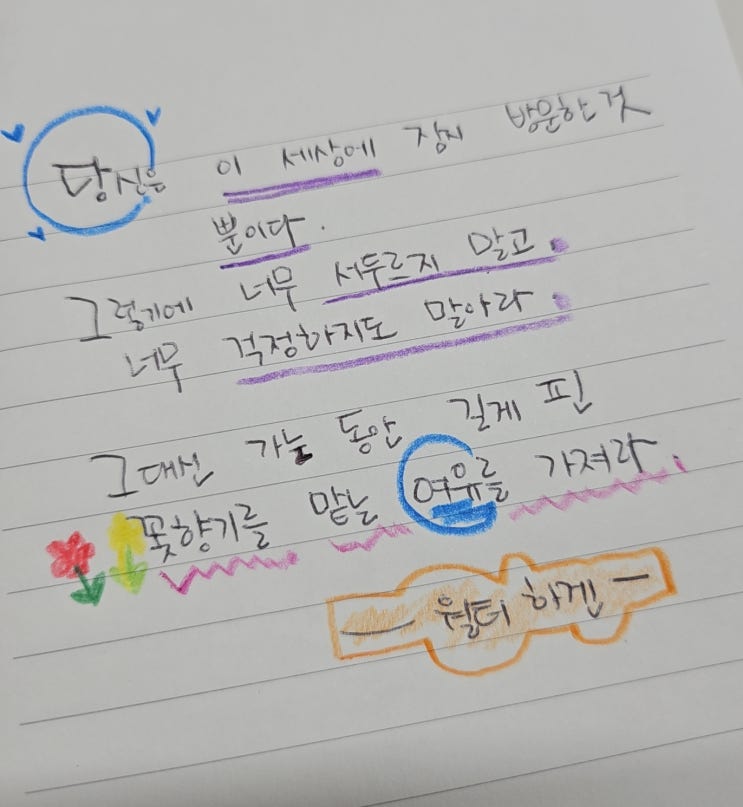 당신은 이 세상에 잠시 방문한 것
뿐이다.
그렇기에 너무 서두르지 말고.
너무 걱정하지도 말아라.
그대신 가는 동안 길게 핀
꽃향기를 맡는 여유를 가져라.
— 월터 하겐 —